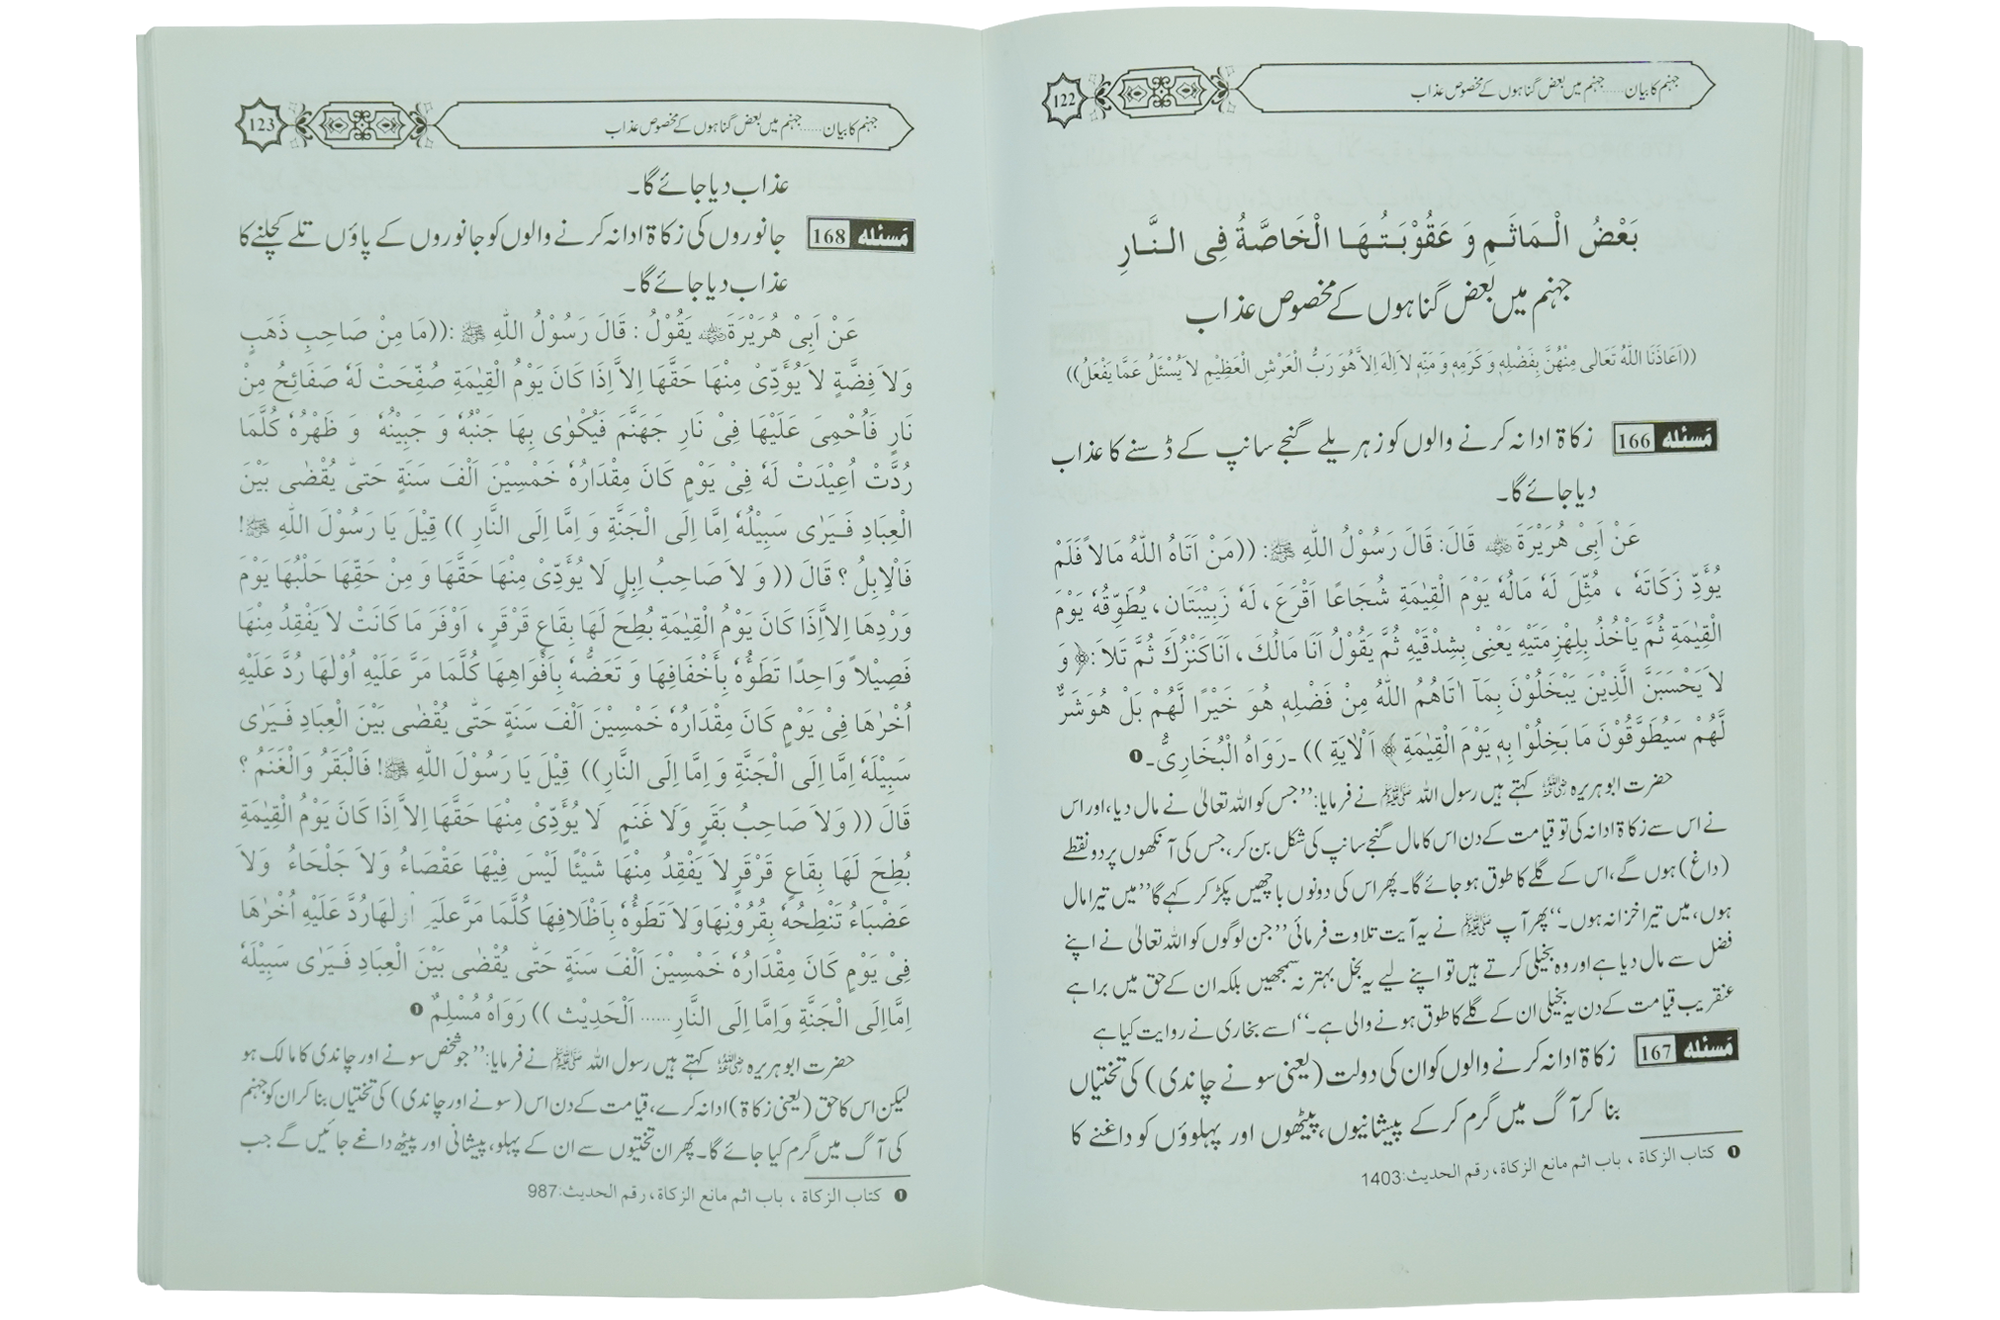 جہنم کا بیان ...... جہنم میں بعض گناہوں کے مخصوص عذاب
122
بَعْضُ الْمَاثَمِ وَ عَقُوْبَتُهَا الْخَاصَّةُ فِى النَّارِ
جہنم میں بعض گناہوں کے مخصوص عذاب
((اَعَاذَنَا اللّٰهُ تَعَالٰى مِنْهُنَّ بِفَضْلِهٖ وَ كَرَمِهٖ وَ مَنِّهٖ لاَ اِلٰهَ اِلاَّ هُوَ رَبُّ الْعَرْشِ الْعَظِيْمِ لاَ يُسْئَلُ عَمَّا يَفْعَلُ))
مَسئله 166 زکاۃ ادا نہ کرنے والوں کو زہریلے گنجے سانپ کے ڈسنے کا عذاب
دیا جائے گا۔
عَنْ اَبِىْ هُرَيْرَةَ ؓ قَالَ: قَالَ رَسُوْلُ اللّٰهِ ﷺ: ((مَنْ اٰتَاهُ اللّٰهُ مَالاً فَلَمْ
يُؤَدِّ زَكَاتَهٗ ، مُثِّلَ لَهٗ مَالُهٗ يَوْمَ الْقِيٰمَةِ شُجَاعًا اَقْرَعَ، لَهٗ زَبِيْبَتَانِ، يُطَوِّقُهٗ يَوْمَ
الْقِيٰمَةِ ثُمَّ يَأْخُذُ بِلِهْزِمَتَيْهِ يَعْنِىْ بِشِدْقَيْهِ ثُمَّ يَقُوْلُ اَنَا مَالُكَ، اَنَا كَنْزُكَ ثُمَّ تَلاَ :﴿ وَ
لاَ يَحْسَبَنَّ الَّذِيْنَ يَبْخَلُوْنَ بِمَآ اٰتَاهُمُ اللّٰهُ مِنْ فَضْلِهٖ هُوَ خَيْرًا لَّهُمْ بَلْ هُوَ شَرٌّ
لَّهُمْ سَيُطَوَّقُوْنَ مَا بَخِلُوْا بِهٖ يَوْمَ الْقِيٰمَةِ ﴾ اَلْاٰيَةِ )) ۔رَوَاهُ الْبُخَارِىُّ۔❶
حضرت ابو ہریرہ ؓ کہتے ہیں رسول اللہ ﷺ نے فرمایا: ’’جس کو اللہ تعالیٰ نے مال دیا، اور اس
نے اس سے زکاۃ ادا نہ کی تو قیامت کے دن اس کا مال گنجے سانپ کی شکل بن کر، جس کی آنکھوں پر دو نقطے
(داغ) ہوں گے، اس کے گلے کا طوق ہو جائے گا۔ پھر اس کی دونوں باچھیں پکڑ کر کہے گا ’’میں تیرا مال
ہوں، میں تیرا خزانہ ہوں۔‘‘ پھر آپ ﷺ نے یہ آیت تلاوت فرمائی ’’جن لوگوں کو اللہ تعالیٰ نے اپنے
فضل سے مال دیا ہے اور وہ بخیلی کرتے ہیں تو اپنے لیے یہ بخل بہتر نہ سمجھیں بلکہ ان کے حق میں برا ہے
عنقریب قیامت کے دن یہ بخیلی ان کے گلے کا طوق ہونے والی ہے۔‘‘ اسے بخاری نے روایت کیا ہے
مَسئله 167 زکاۃ ادا نہ کرنے والوں کو ان کی دولت (یعنی سونے چاندی) کی تختیاں
بنا کر آگ میں گرم کر کے پیشانیوں، پیٹھوں اور پہلوؤں کو داغنے کا
❶ کتاب الزکاۃ ، باب اثم مانع الزکاۃ، رقم الحدیث:1403
جہنم کا بیان ...... جہنم میں بعض گناہوں کے مخصوص عذاب
123
عذاب دیا جائے گا۔
مَسئله 168 جانوروں کی زکاۃ ادا نہ کرنے والوں کو جانوروں کے پاؤں تلے کچلنے کا
عذاب دیا جائے گا۔
عَنْ اَبِىْ هُرَيْرَةَ ؓ يَقُوْلُ : قَالَ رَسُوْلُ اللّٰهِ ﷺ :((مَا مِنْ صَاحِبِ ذَهَبٍ
وَلاَ فِضَّةٍ لاَ يُؤَدِّىْ مِنْهَا حَقَّهَا اِلاَّ اِذَا كَانَ يَوْمُ الْقِيٰمَةِ صُفِّحَتْ لَهٗ صَفَائِحُ مِنْ
نَارٍ فَاُحْمِىَ عَلَيْهَا فِىْ نَارِ جَهَنَّمَ فَيُكْوٰى بِهَا جَنْبُهٗ وَ جَبِيْنُهٗ وَ ظَهْرُهٗ كُلَّمَا
رُدَّتْ اُعِيْدَتْ لَهٗ فِىْ يَوْمٍ كَانَ مِقْدَارُهٗ خَمْسِيْنَ اَلْفَ سَنَةٍ حَتّٰى يُقْضٰى بَيْنَ
الْعِبَادِ فَيَرٰى سَبِيْلُهٗ اِمَّا اِلَى الْجَنَّةِ وَ اِمَّا اِلَى النَّارِ )) قِيْلَ يَا رَسُوْلَ اللّٰهِ ﷺ!
فَالْاِبِلُ ؟ قَالَ (( وَ لاَ صَاحِبُ اِبِلٍ لَا يُؤَدِّىْ مِنْهَا حَقَّهَا وَ مِنْ حَقِّهَا حَلْبُهَا يَوْمَ
وِرْدِهَا اِلاَّ اِذَا كَانَ يَوْمُ الْقِيٰمَةِ بُطِحَ لَهَا بِقَاعٍ قَرْقَرٍ ، اَوْفَرَ مَا كَانَتْ لاَ يَفْقِدُ مِنْهَا
فَصِيْلاً وَاحِدًا تَطَؤُهٗ بِأَخْفَافِهَا وَ تَعَضُّهٗ بِأَفْوَاهِهَا كُلَّمَا مَرَّ عَلَيْهِ اُوْلٰهَا رُدَّ عَلَيْهِ
اُخْرٰهَا فِىْ يَوْمٍ كَانَ مِقْدَارُهٗ خَمْسِيْنَ اَلْفَ سَنَةٍ حَتّٰى يُقْضٰى بَيْنَ الْعِبَادِ فَيَرٰى
سَبِيْلَهٗ اِمَّا اِلَى الْجَنَّةِ وَ اِمَّا اِلَى النَّارِ)) قِيْلَ يَا رَسُوْلَ اللّٰهِ ﷺ! فَالْبَقَرُ وَالْغَنَمُ ؟
قَالَ (( وَلاَ صَاحِبُ بَقَرٍ وَلَا غَنَمٍ لَا يُؤَدِّىْ مِنْهَا حَقَّهَا اِلاَّ اِذَا كَانَ يَوْمُ الْقِيٰمَةِ
بُطِحَ لَهَا بِقَاعٍ قَرْقَرٍ لاَ يَفْقِدُ مِنْهَا شَيْئًا لَيْسَ فِيْهَا عَقْصَاءُ وَلاَ جَلْحَاءُ وَلاَ
عَضْبَاءُ تَنْطِحُهٗ بِقُرُوْنِهَا وَلاَ تَطَؤُهٗ بِاَظْلَافِهَا كُلَّمَا مَرَّ عَلَيْهِ اُوْلٰهَا رُدَّ عَلَيْهِ اُخْرٰهَا
فِىْ يَوْمٍ كَانَ مِقْدَارُهٗ خَمْسِيْنَ اَلْفَ سَنَةٍ حَتّٰى يُقْضٰى بَيْنَ الْعِبَادِ فَيَرٰى سَبِيْلَهٗ
اِمَّا اِلَى الْجَنَّةِ وَاِمَّا اِلَى النَّارِ...... اَلْحَدِيْث )) رَوَاهُ مُسْلِمٌ❶
حضرت ابو ہریرہ ؓ کہتے ہیں رسول اللہ ﷺ نے فرمایا: ’’جو شخص سونے اور چاندی کا مالک ہو
لیکن اس کا حق (یعنی زکاۃ) ادا نہ کرے، قیامت کے دن اس (سونے اور چاندی) کی تختیاں بنا کر ان کو جہنم
کی آگ میں گرم کیا جائے گا۔ پھر ان تختیوں سے ان کے پہلو، پیشانی اور پیٹھ داغے جائیں گے جب
❶ کتاب الزکاۃ ، باب اثم مانع الزکاۃ، رقم الحدیث:987